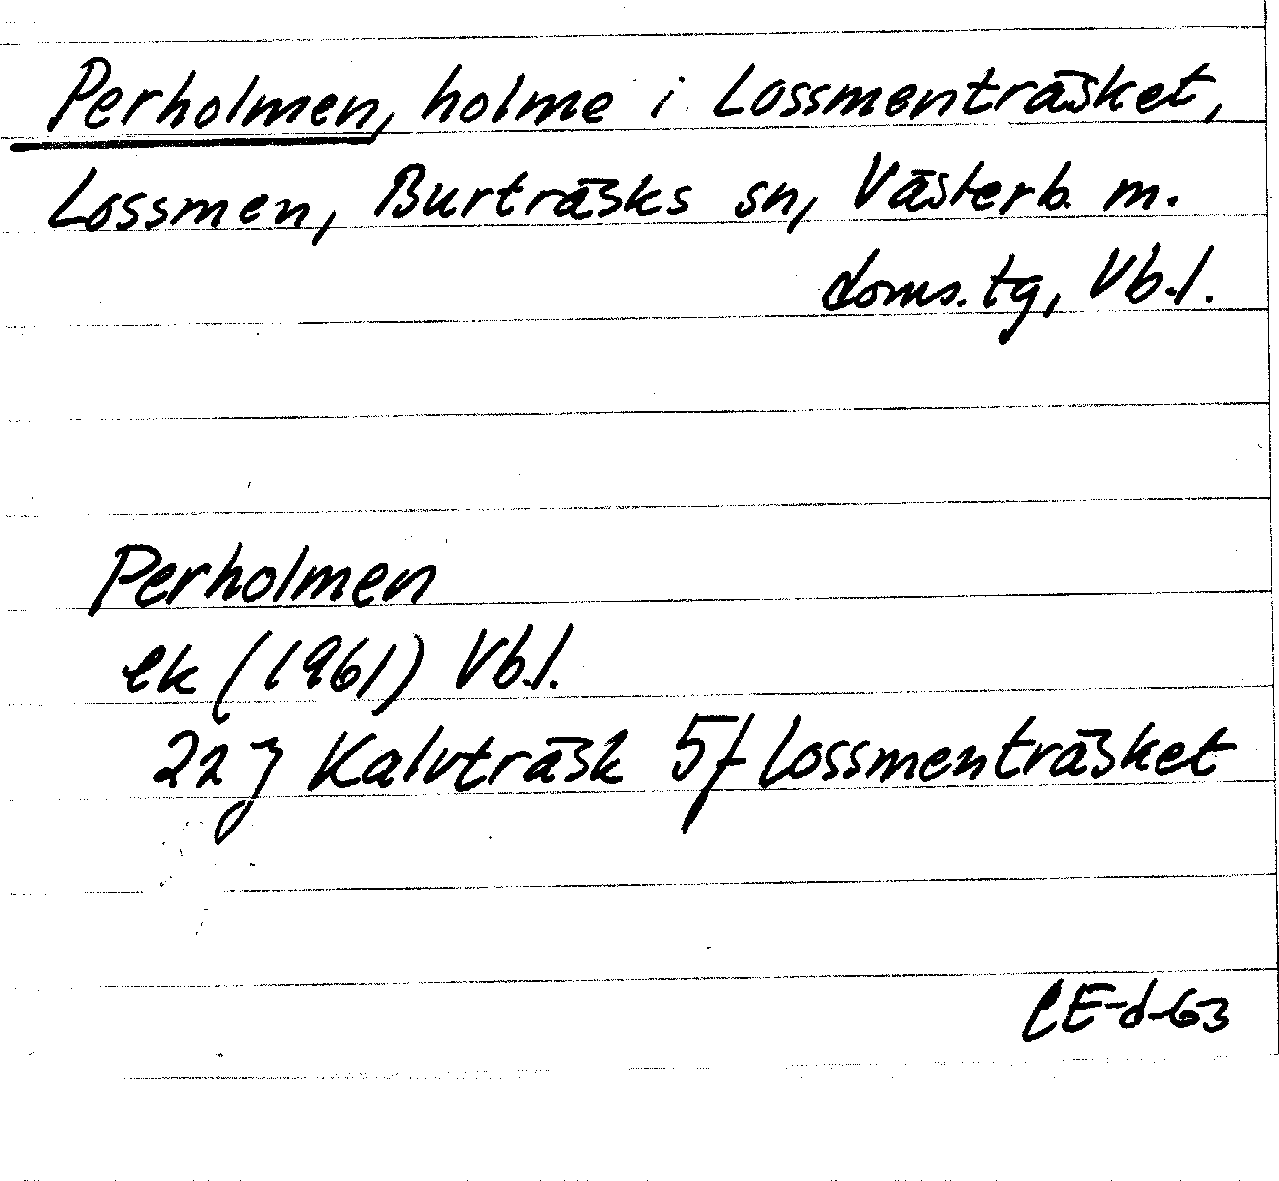 Perholmen, holme i Lossmenträsket,
Lossmen, Burträsks sn, Västerb. m.
doms.tg, Vb.l.
Perholmen
ek (1961) Vb.l.
22 J Kalvträsk 5f Lossmenträsket
CE-d-63